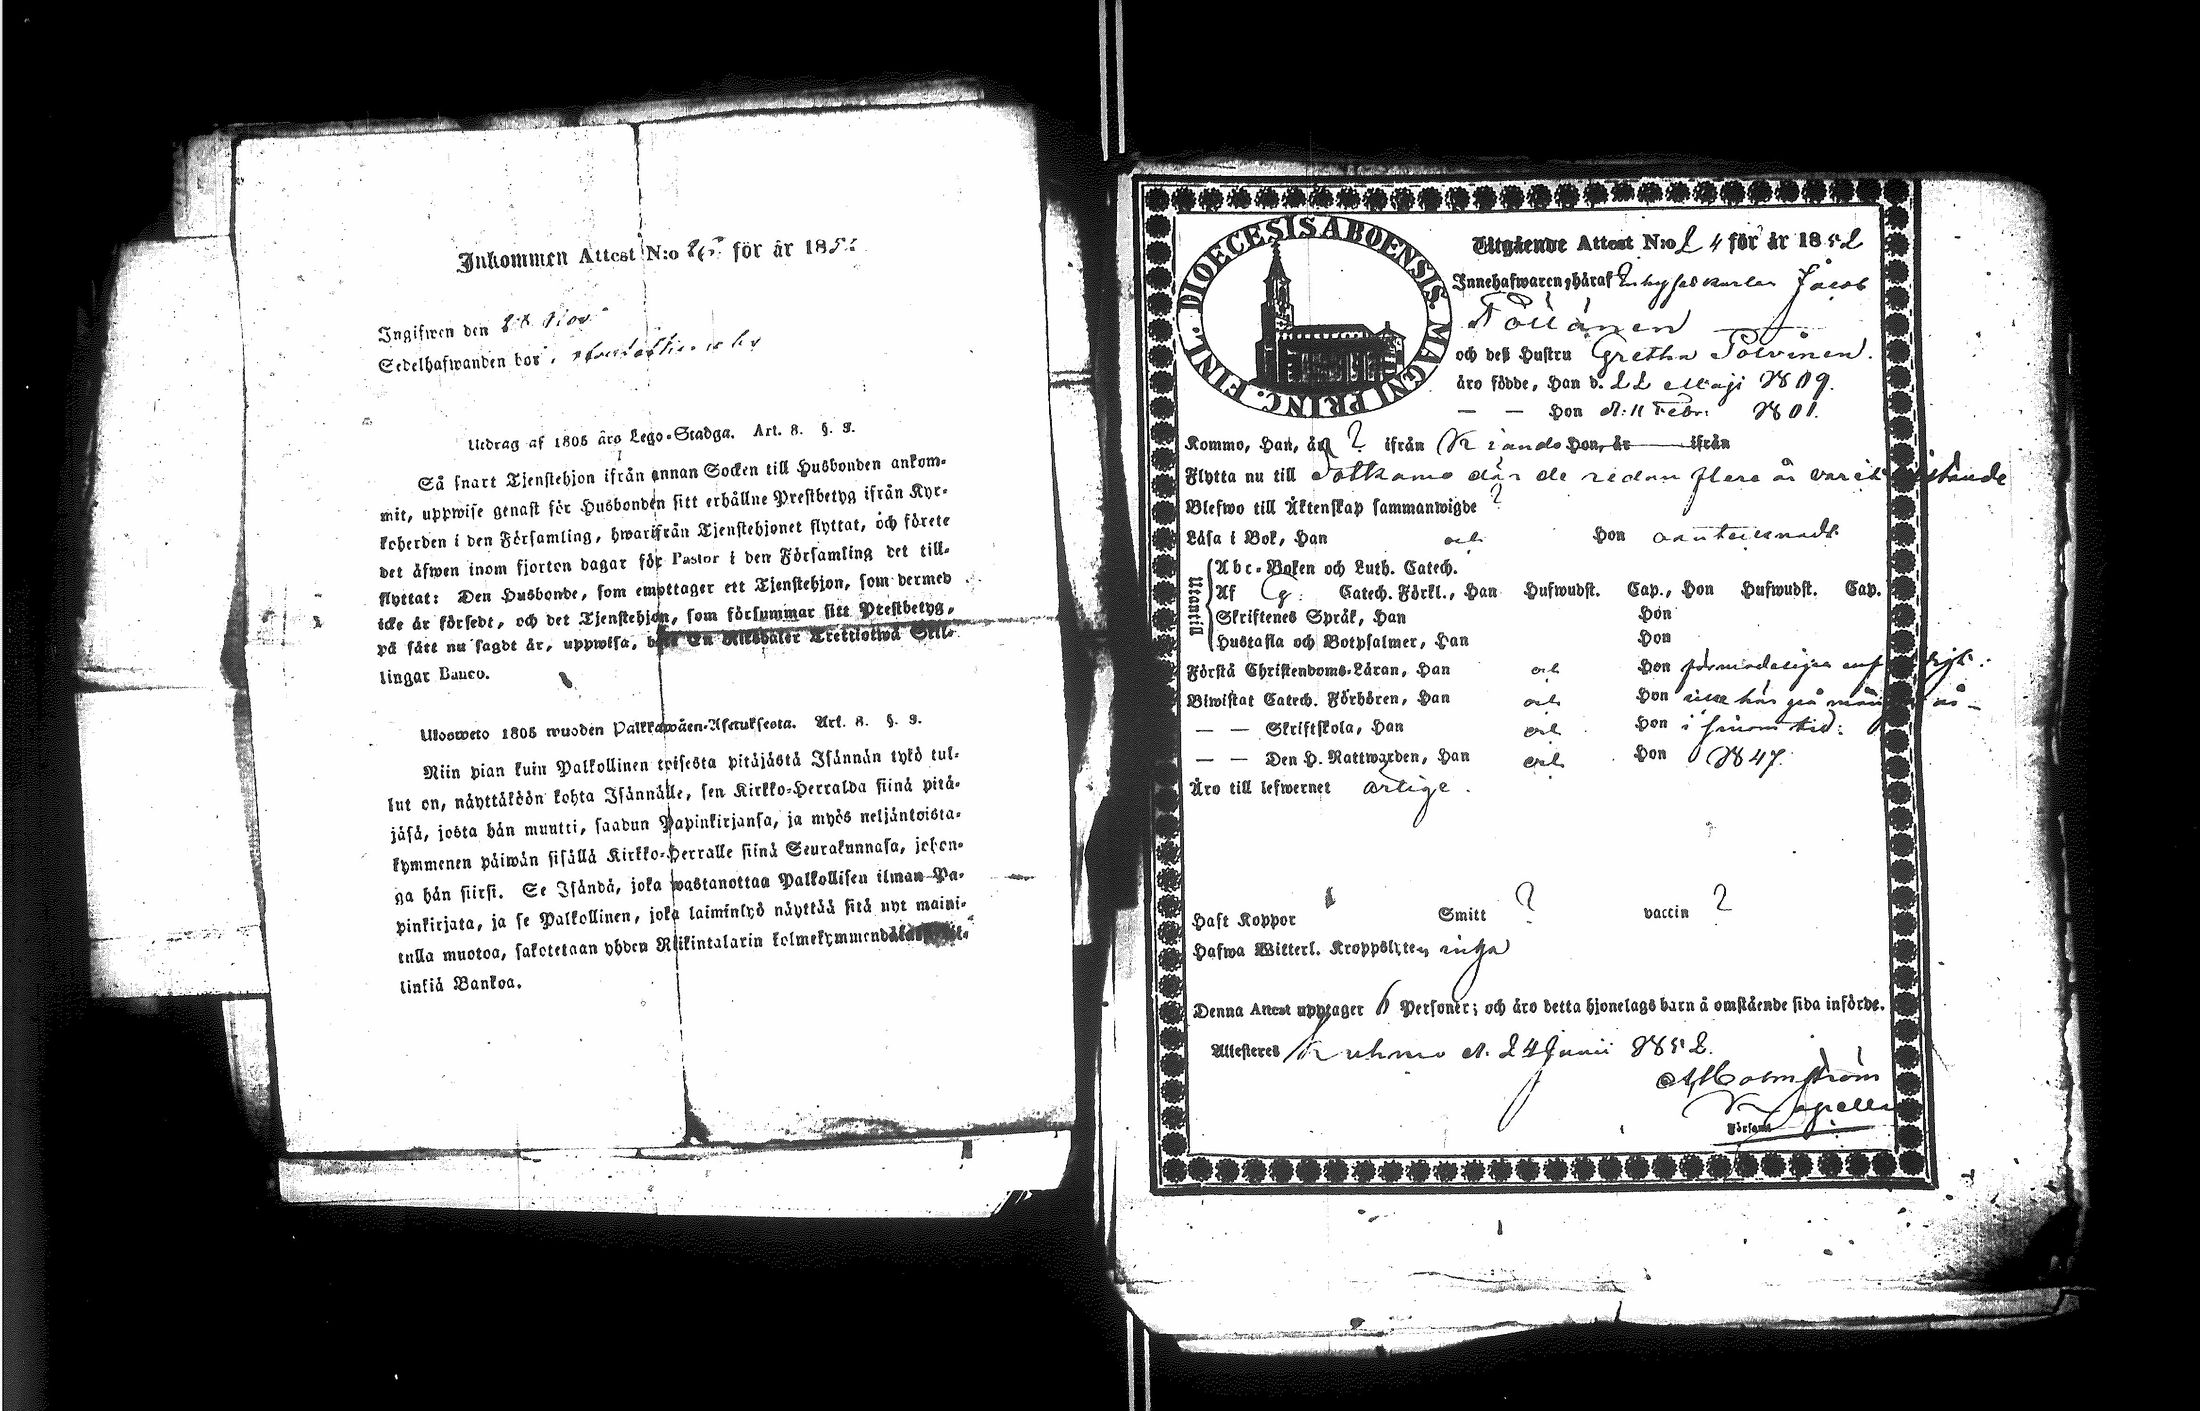 Inkommen Attest N:o för år 185
Ingifwen den 28 Nov
Sedelhafwanden bor i
Utdrag af 1805 års Lego-Stadga. Art. 8. §. 9.
Så snart Tjenstehjon ifrån annan Socken till Husbonden ankom-
mit, uppwise genast för Husbonden sitt erhållne Prestbetyg ifrån Kyr-
koherden i den Församling, hwarifrån Tjenstehjonet flyttat, och förete
det äfwen inom fjorton dagar för Pastor i den Församling det till-
flyttat: Den Husbonde, som emottager ett Tjenstehjon, som dermed
icke är försedt, och det Tjenstehjon, som försummar sitt Prestbetyg,
på sätt nu sagdt är, uppwisa, böte En Riksdaler Trettiotwå Skil-
lingar Banco.
Ulosweto 1805 wuoden Palkkawäen-Asetuksesta. Art. 8. §. 9.
Niin pian kuin Palkollinen toisesta pitäjästä Isännän tykö tul-
lut on, näyttäköön kohta Isännälle, sen Kirkko-Herralda siinä pitä-
jäsä, josta hän muutti, saadun Papinkirjansa, ja myös neljäntoista-
kymmenen päiwän sisällä Kirkko-Herralle siinä Seurakunnasa, johon-
ga hän siirsi. Se Isändä, joka wastanottaa Palkollisen ilman Pa-
pinkirjata, ja se Palkollinen, joka laiminlyö näyttää sitä nyt maini-
tulla muotoa, sakotetaan yhden Riikintalarin kolmekymmendä
linkiä Bankoa.
DIOECESIS ABOENSIS. MAGNI PRINC. FINL.
Utgående Attest N:o 24 för år 1852
Innehafwaren häraf Inhyseskarlen Jacob
och deß Hustru Gretha Polvinen.
äro födde, Han d. 22 Maji 1809.
— — Hon d. 11 Febr: 1801.
Kommo, Han, år ? ifrån Kiando Hon, år ifrån
Flytta nu till Sotkamo där de redan flere år varit
Blefwo till Äktenskap sammanwigde ?
Läsa i Bok, Han och Hon
Utantill
Abc-Boken och Luth. Catech.
Af Catech. Förkl., Han Hufwudst. Cap., Hon Hufwudst. Cap.
Skriftenes Språk, Han Hon
Hustafla och Botpsalmer, Han Hon
Förstå Christendoms-Läran, Han och Hon
Biwistat Catech. Förhören, Han och Hon icke här på
— — Skriftskola, Han och Hon i sinom tid:
— — Den H. Nattwarden, Han och Hon 1847.
Äro till lefwernet ärlige.
Haft Koppor Smitt ? vaccin ?
Hafwa Witterl. Kroppslyten inga
Denna Attest upptager 6 Personer; och äro detta hjonelags barn å omstående sida införde.
Attesteres Kuhmo d. 24 Junii 1852.
Holmström
Kapellan
Församl